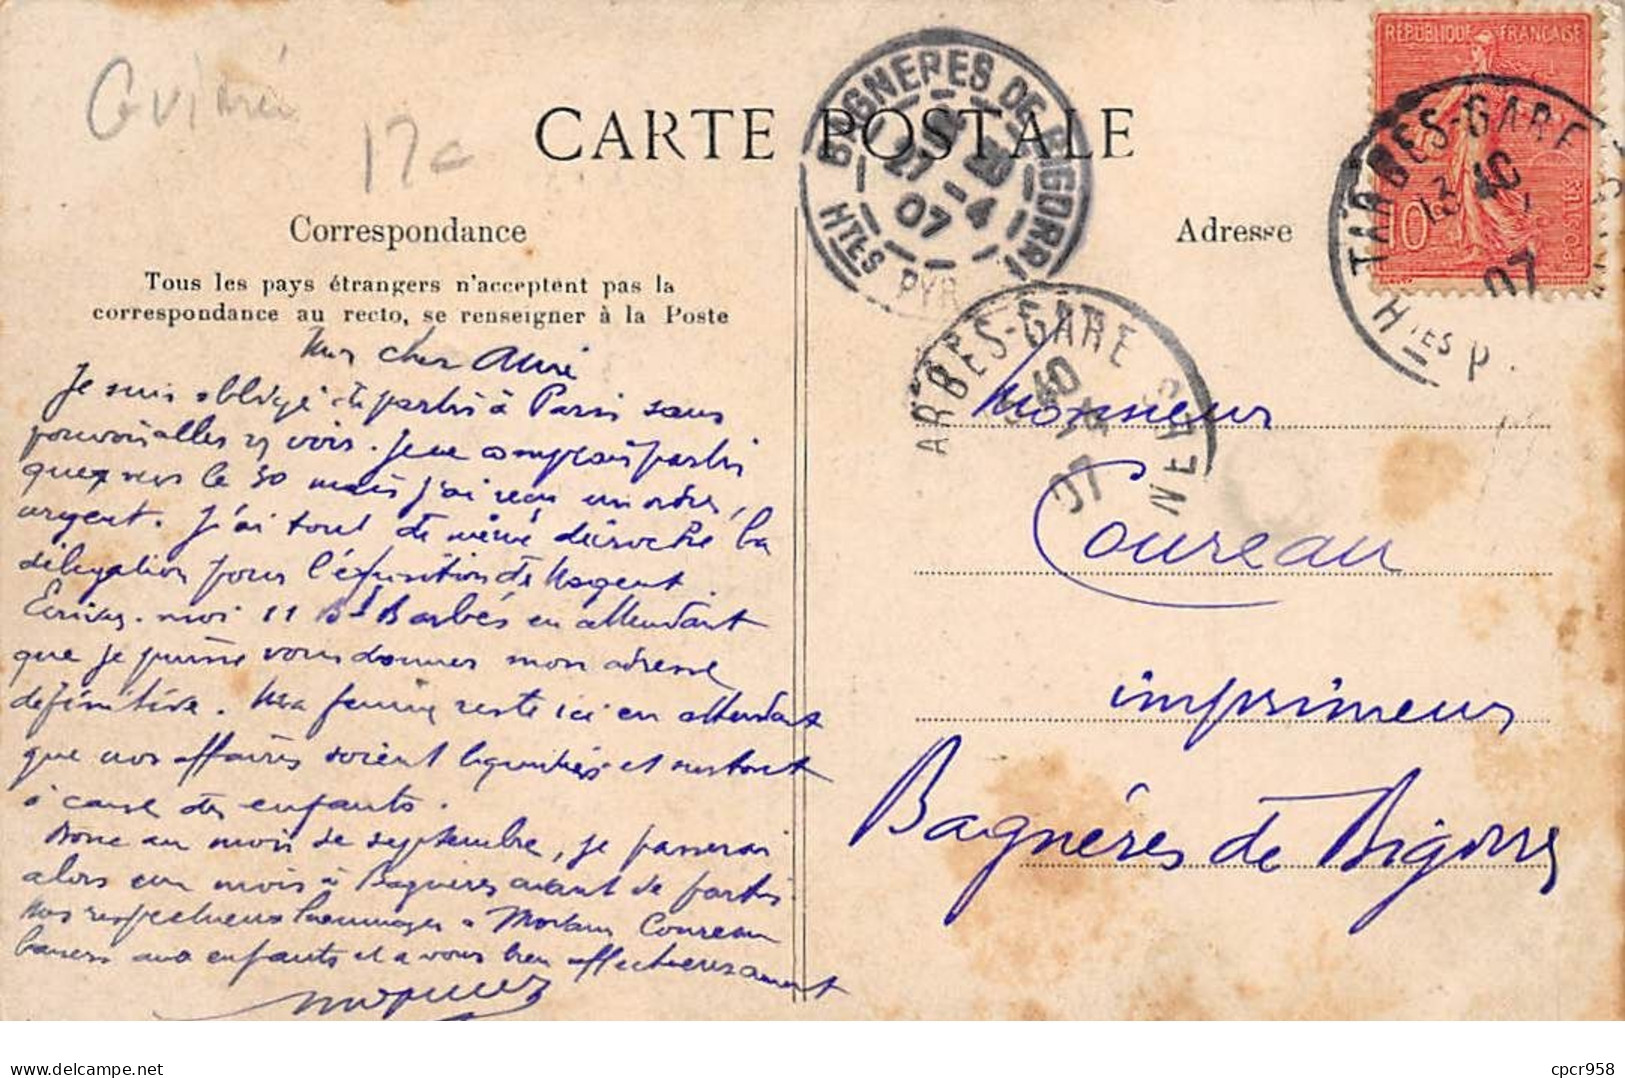 CARTE POSTALE
BAGNERES DE BIGORRE
27 - 4
07
HTES PYR
REPUBLIQUE FRANCAISE
10
POSTES
TARBES-GARE
13 40
07
HTES P.
Correspondance
Adresse
Tous les pays étrangers n'acceptent pas la
correspondance au recto, se renseigner à la Poste
ARBES-GARE
40
07
17c
Mon cher Ami
Je suis obligé de partir à Paris sans
pouvoir aller vs voir. Je ne comptais partir
que vers le 30 mais j'ai reçu un ordre,
urgent. J'ai tout de même décroché la
délégation pour l'exposition de Nogent.
Ecrivez-moi 11 Bd Barbés en attendant
que je puisse vous donner mon adresse
définitive. Ma femme reste ici en attendant
que nos affaires soient liquidées et surtout
à cause des enfants.
Donc au mois de septembre, je passerai
alors un mois à Bagnères avant de partir.
Mes respectueux hommages à Madame Coureau
baisers aux enfants et à vous bien affectueusement
Monsieur
Coureau
imprimeur
Bagnéres de Bigorre
cpcr958